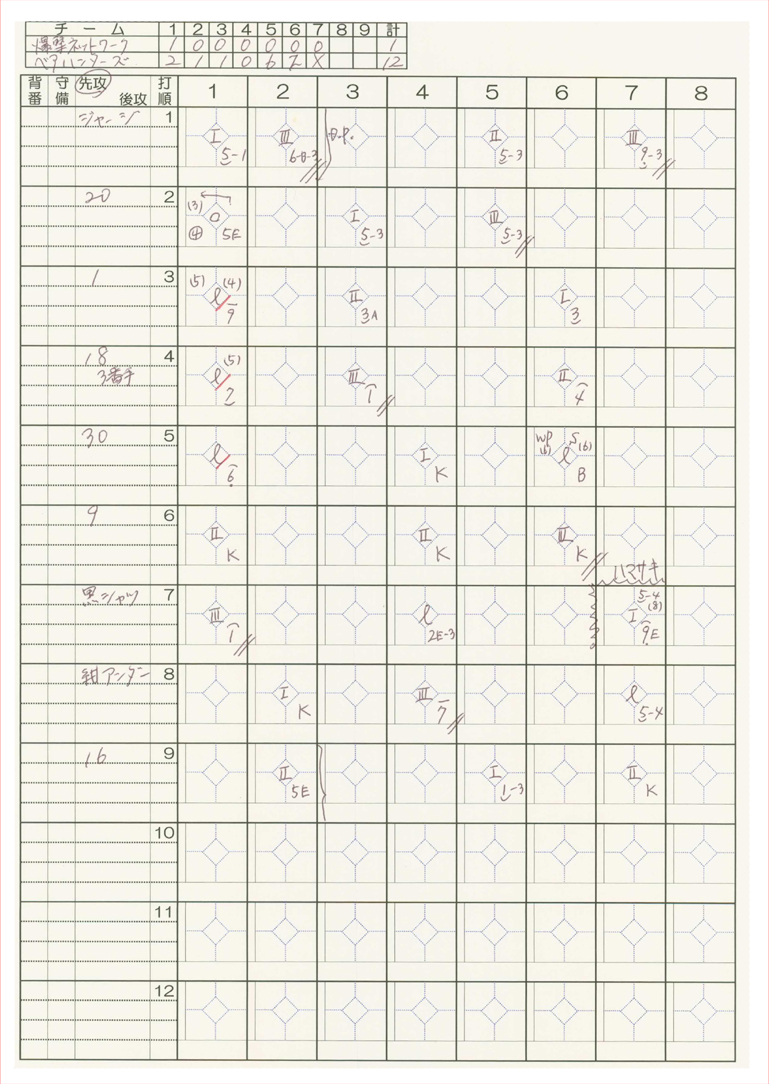 チーム 1 2 3 4 5 6 7 8 9 計
爆撃ネットワーク 1 0 0 0 0 0 0 1
ベアハンターズ 2 1 1 0 6 2 X 12
背番 守備 先攻 後攻 打順 1 2 3 4 5 6 7 8
ジャージ 1 I 5-1 III 6-D-3 D.P. II 5-3 III 9-3
20 2 (3) O ④ 5E I 5-3 III 5-3
1 3 (5) (4) l 9 II 3A I 3
18 4 (5) l 2 III 1 II 4
3番手
30 5 l 6 I K WP (6) S (6) l B
9 6 II K II K III K
ハマサキ
黒シャツ 7 III 1 l 2E-3 5-4 (8) I 9E
紺アンダー 8 I K III 7 l 5-4
16 9 II 5E I 1-3 II K
10
11
12